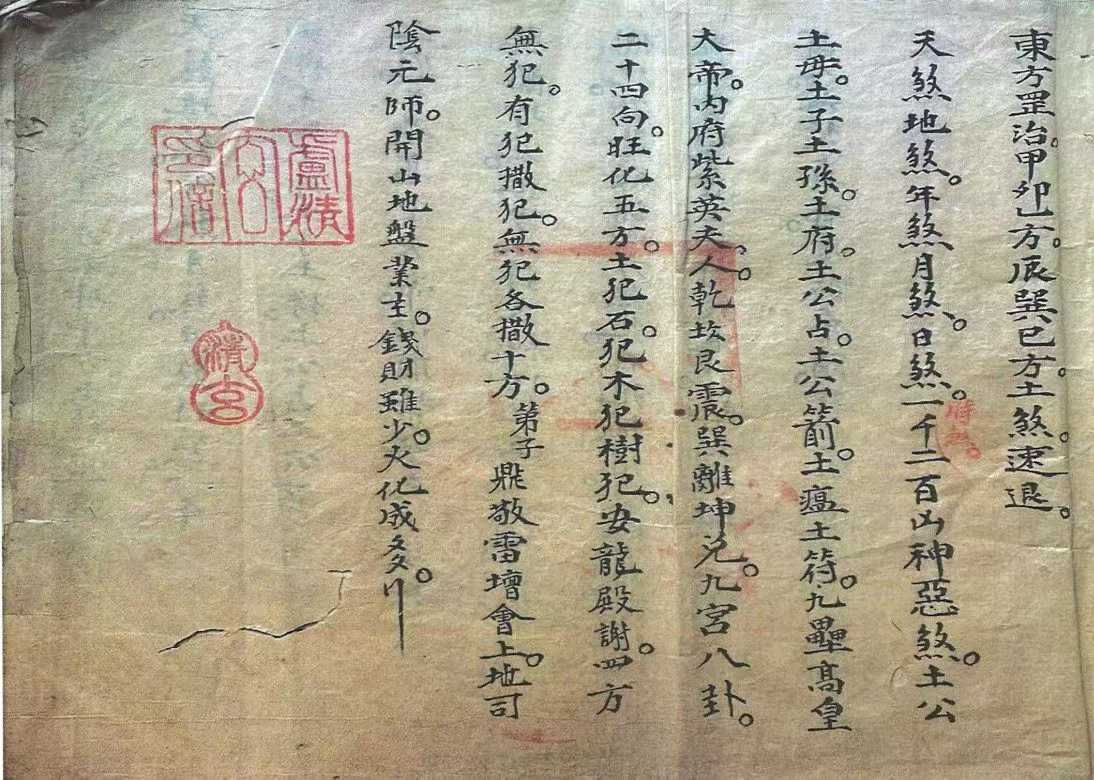 東方罡治。甲卯乙方。辰巽巳方。土煞。速退。
天煞地煞。年煞月煞。日煞。一千二百凶神惡煞。土公
府煞。
土母。土子土孫。土府。土公占。土公箭。土瘟土符。九壘高皇
大帝。內府紫英夫人。乾坎艮震。巽離坤兌。九宮八卦。
二十四向。旺化五方。土犯石。犯木犯樹犯。安龍殿謝。四方
無犯。有犯撒犯。無犯各撒十方。弟子 鼎敬雷壇會上。地司
陰元帥。開山地盤業主。錢財雖少。火化成多。
盧清
玄
印信
清玄